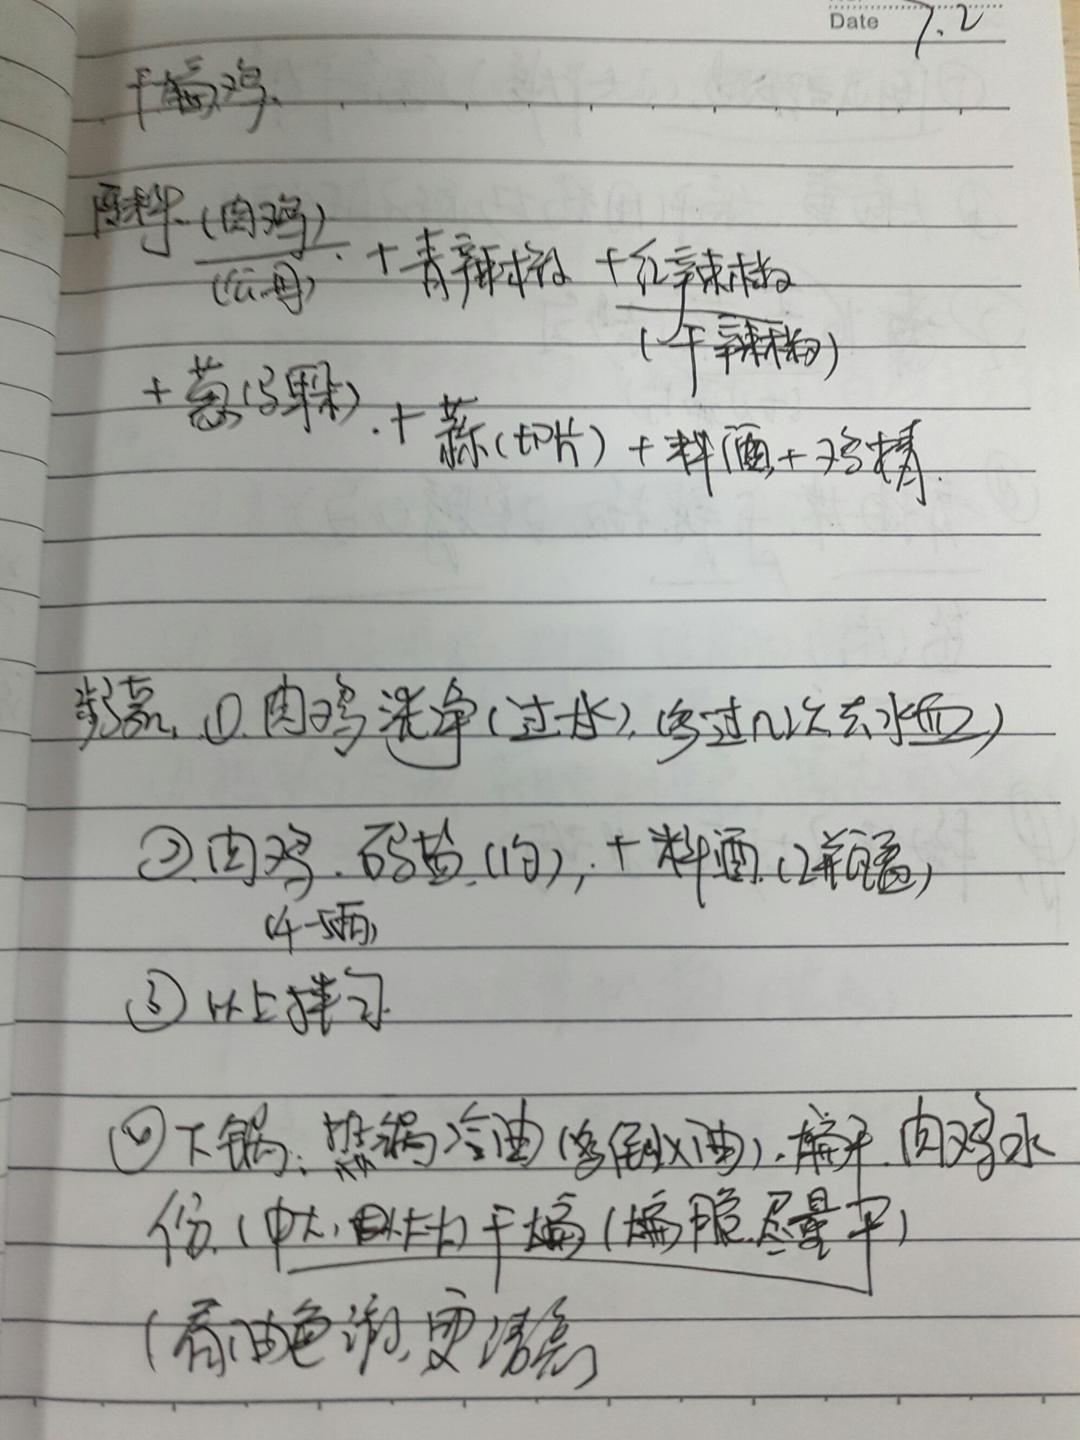 Date 7.2
干煸鸡.
配料. (肉鸡) + 青辣椒 + 红辣椒
(公母)
(干辣椒)
+ 葱(马耳朵) . + 蒜(切片) + 料酒 + 鸡精.
①. 肉鸡洗净 (过水). (多过几次去水血)
②. 肉鸡. 码盐. (1勺), + 料酒. (2瓶盖)
(4-5两)
③ 以上拌匀.
④ 下锅: 热锅冷油 (多倒油). 煸干. 肉鸡水
份. (中火, ) 干煸 (煸脆.尽量干)
(看油色 变清亮)